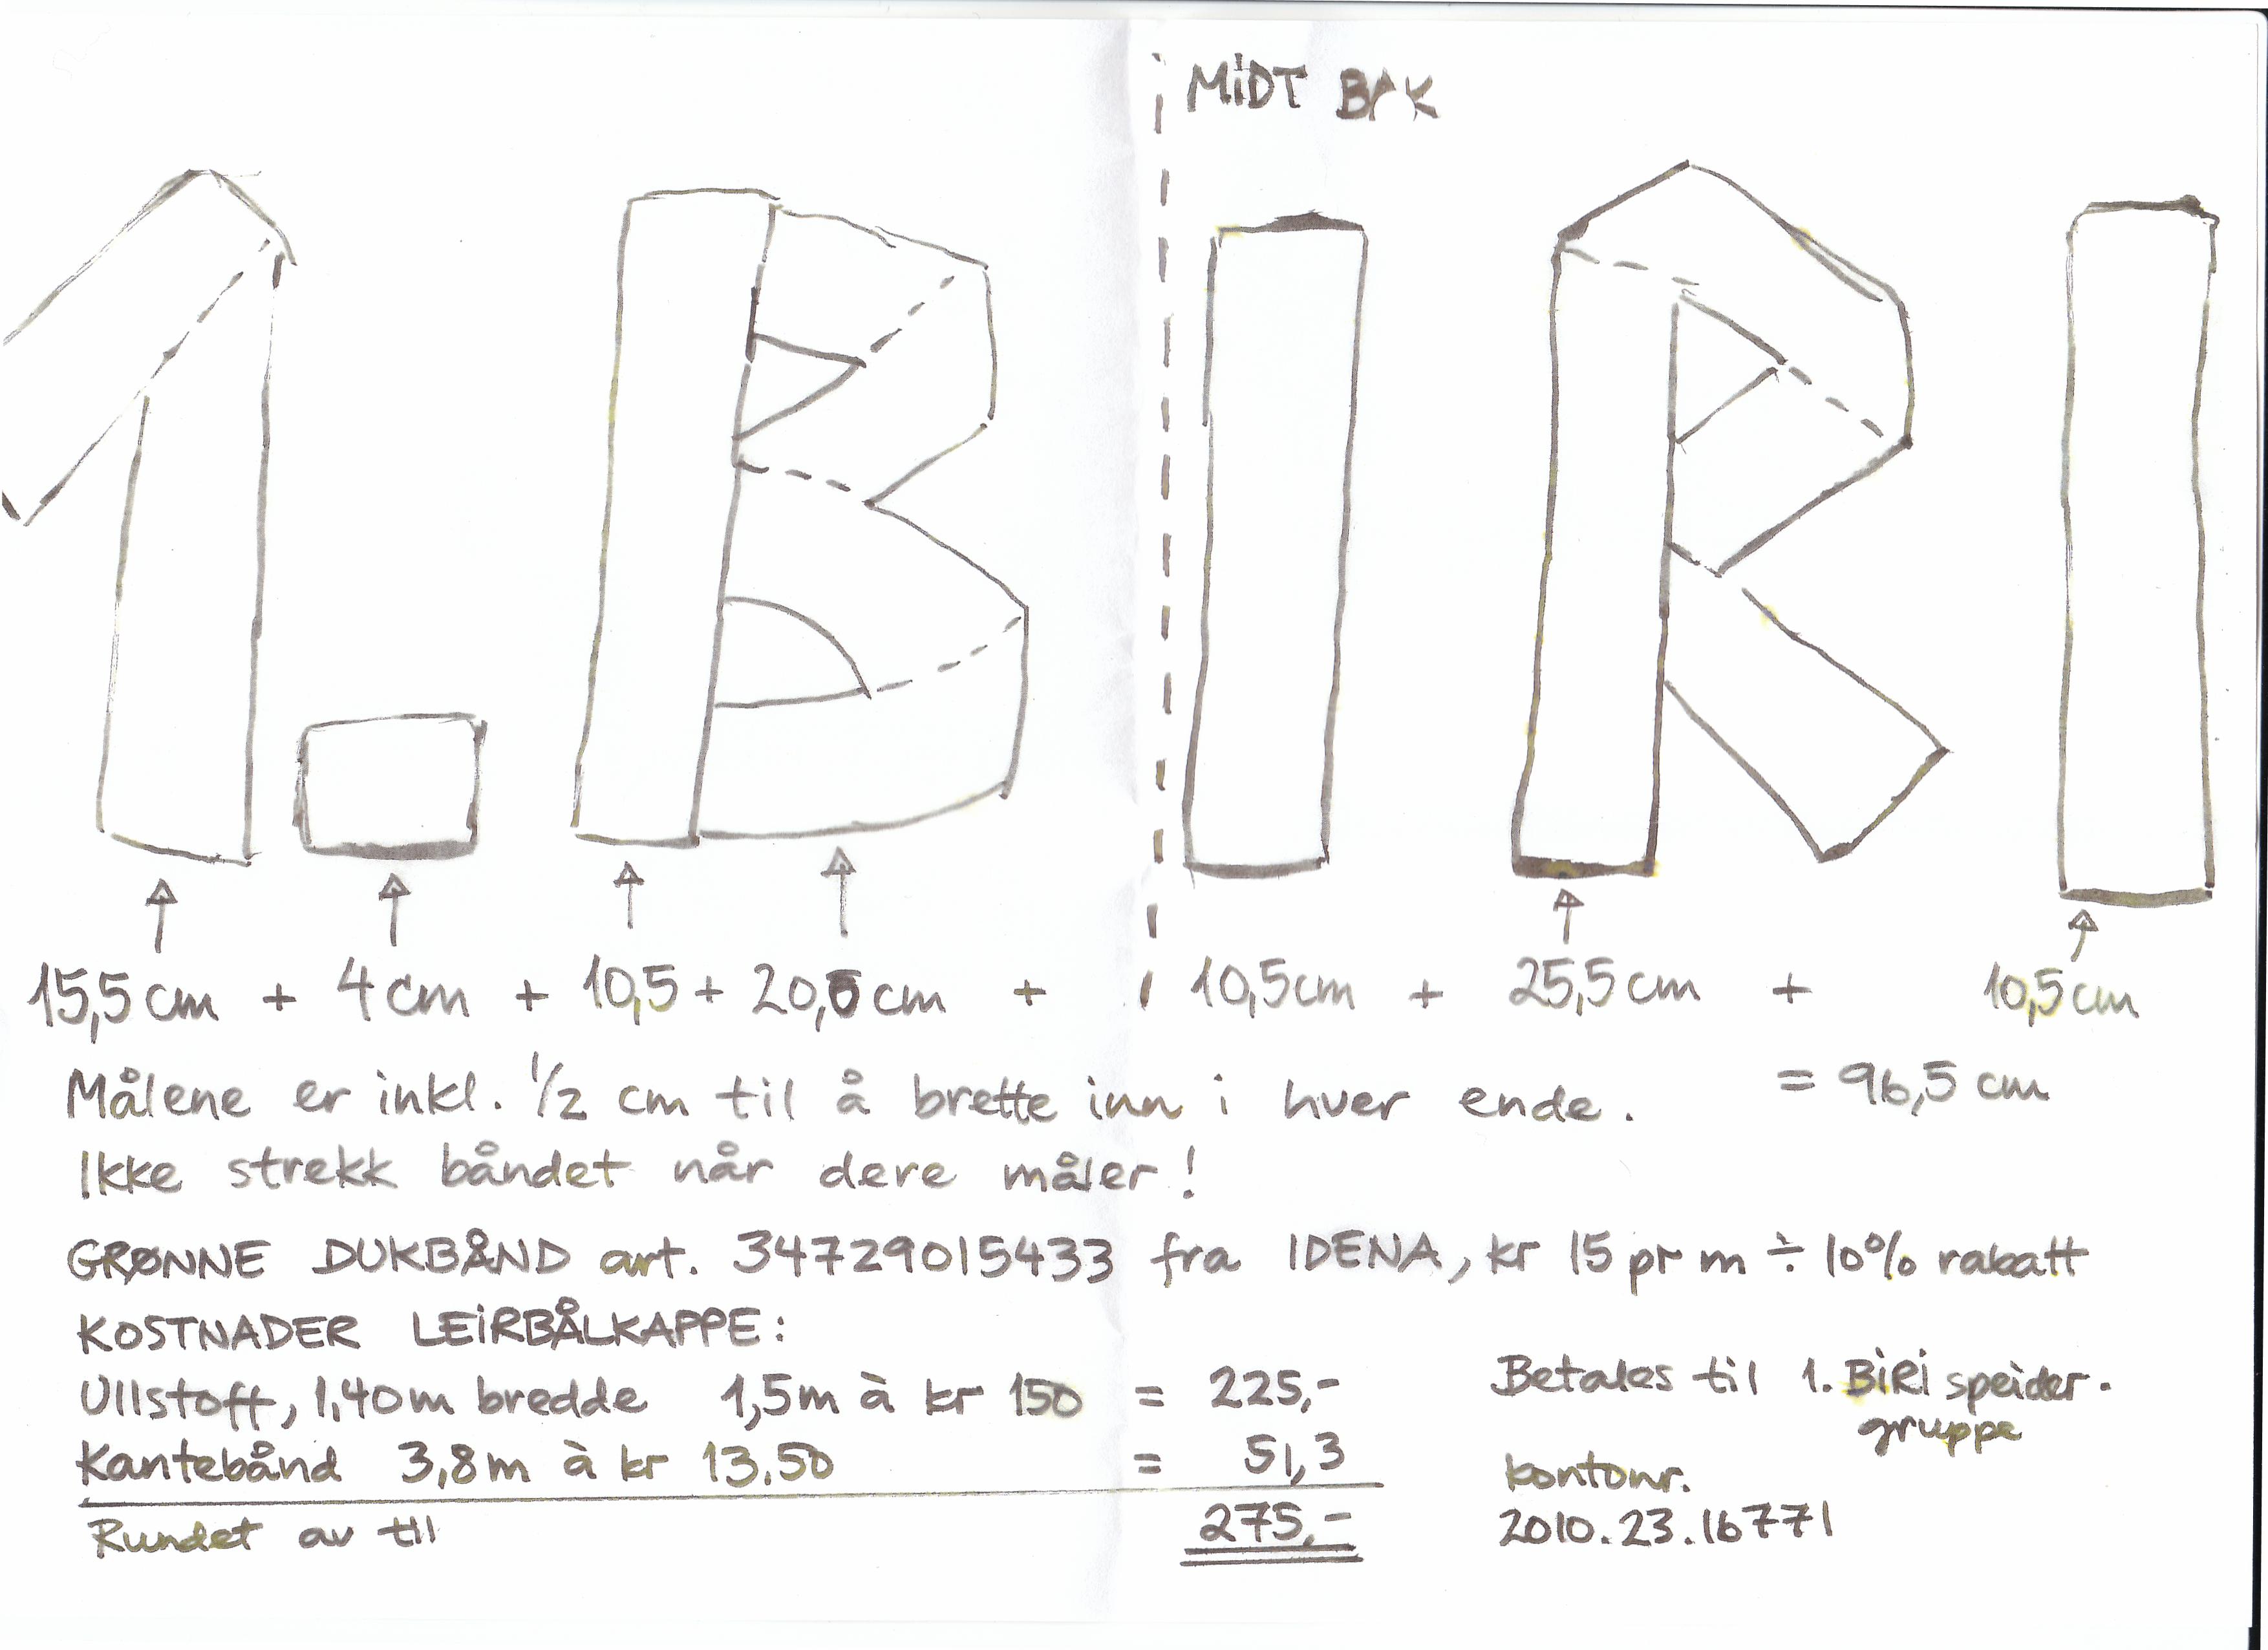 MIDT BAK
1. BIRI
15,5 cm + 4 cm + 10,5 + 20,0 cm + 10,5 cm + 25,5 cm + 10,5 cm
= 96,5 cm
Målene er inkl. 1/2 cm til å brette inn i hver ende.
Ikke strekk båndet når dere måler!
GRØNNE DUKBÅND art. 34729015433 fra IDENA, kr 15 pr m ÷ 10% rabatt
KOSTNADER LEIRBÅLKAPPE:
Ullstoff, 1,40m bredde 1,5m à kr 150 = 225,-
Kantebånd 3,8m à kr 13.50 = 51,3
Rundet av til 275,-
Betales til 1. BIRI speider-
gruppe
kontonr.
2010.23.16771